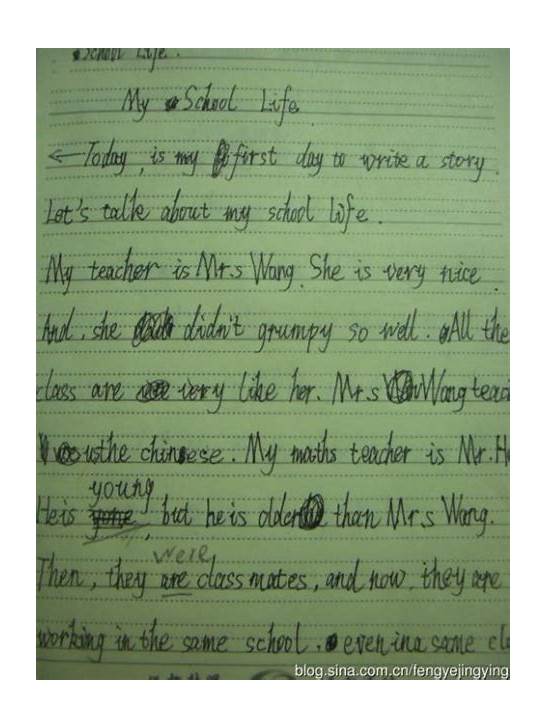 School Life.
My School Life
Today, is my first day to write a story.
Let's talk about my school life.
My teacher is Mr.s Wang. She is very nice.
And, she didn't grumpy so well. All the
class are very like her. Mr.s Wang teac
us the chinese. My maths teacher is Mr. H
young
He is, but he is older than Mr.s Wang.
were
Then, they are classmates, and now, they are
working in the same school. even in a same cl
blog.sina.com.cn/fengyejingying